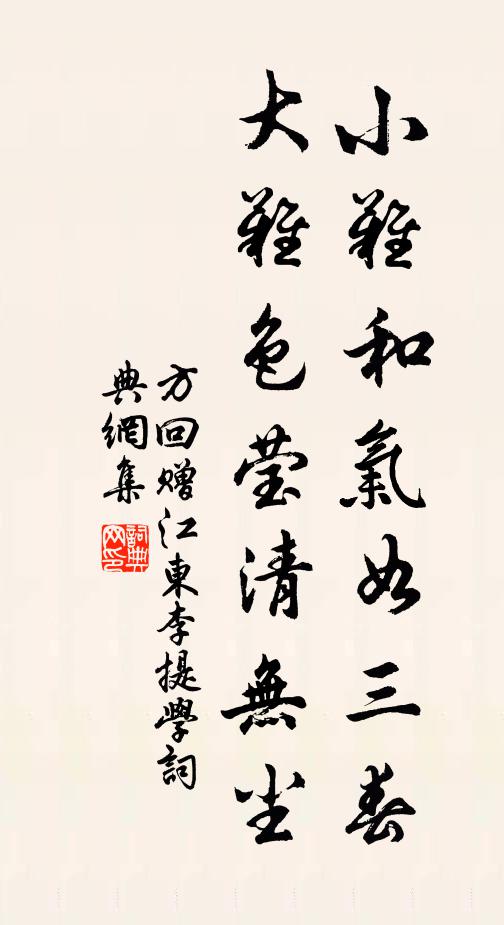 小難和氣如三春
大難色瑩清無尘
方回赠江東李提學詞
典網集
詞典網印